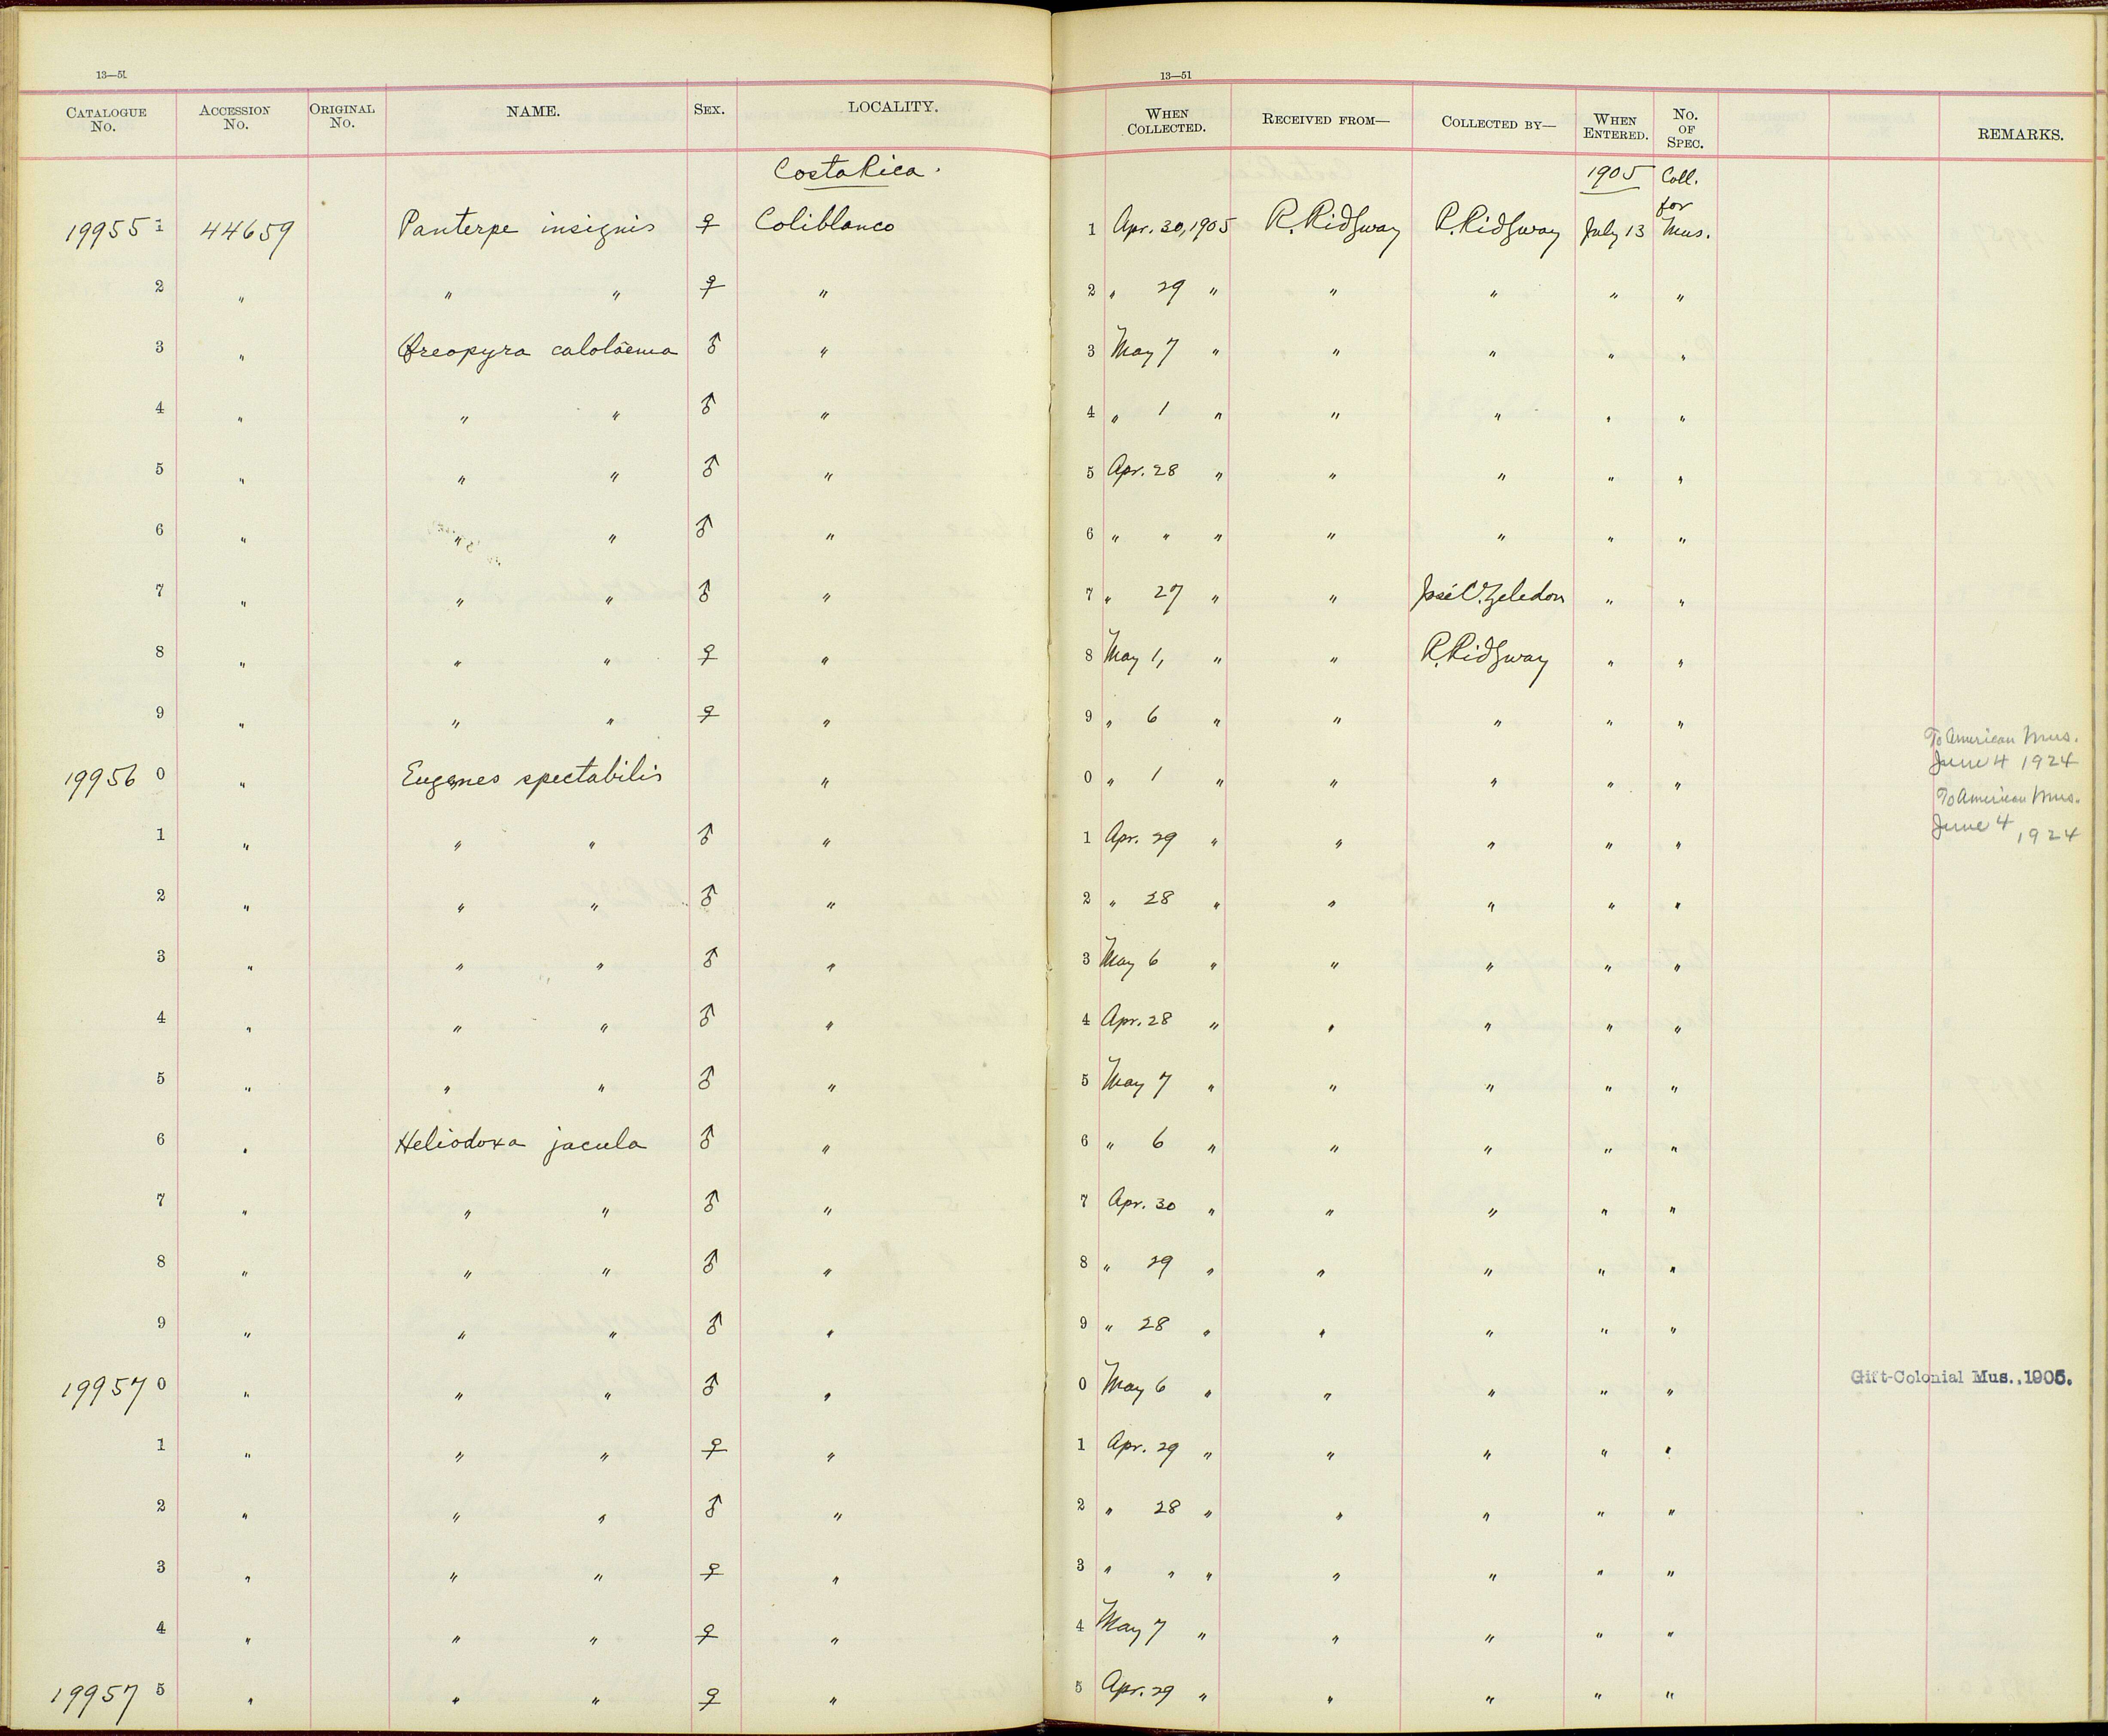 13—51.
13—51
CATALOGUE No. ACCESSION No. ORIGINAL No. NAME. SEX. LOCALITY. WHEN COLLECTED. RECEIVED FROM— COLLECTED BY— WHEN ENTERED. No. OF SPEC. REMARKS.
Costa Rica. 1905 Coll. for
19955 1 44659 Panterpe insignis ♀ Coliblanco 1 Apr. 30, 1905 R. Ridgway R. Ridgway July 13 Mus.
2 " " " ♀ " 2 " 29 " " " " "
3 " Oreopyra calolaema ♂ " 3 May 7 " " " " "
4 " " " ♂ " 4 " 1 " " " " "
5 " " " ♂ " 5 Apr. 28 " " " " "
6 " " " ♂ " 6 " " " " " " "
7 " " " ♂ " 7 " 27 " " José C. Zeledon " "
8 " " " ♀ " 8 May 1, " " R. Ridgway " "
9 " " " ♀ " 9 " 6 " " " " "
19956 0 " Eugenes spectabilis " 0 " 1 " " " " " To American Mus. June 4 1924
1 " " " ♂ " 1 Apr. 29 " " " " " To American Mus. June 4, 1924
2 " " " ♂ " 2 " 28 " " " " "
3 " " " ♂ " 3 May 6 " " " " "
4 " " " ♂ " 4 Apr. 28 " " " " "
5 " " " ♂ " 5 May 7 " " " " "
6 " Heliodoxa jacula ♂ " 6 " 6 " " " " "
7 " " " ♂ " 7 Apr. 30 " " " " "
8 " " " ♂ " 8 " 29 " " " " "
9 " " " ♂ " 9 " 28 " " " " "
19957 0 " " " ♂ " 0 May 6 " " " " " Gift-Colonial Mus., 1905.
1 " " " ♀ " 1 Apr. 29 " " " " "
2 " " " ♂ " 2 " 28 " " " " "
3 " " " ♀ " 3 " " " " " " "
4 " " " ♀ " 4 May 7 " " " " "
19957 5 " " " ♀ " 5 Apr. 29 " " " " "